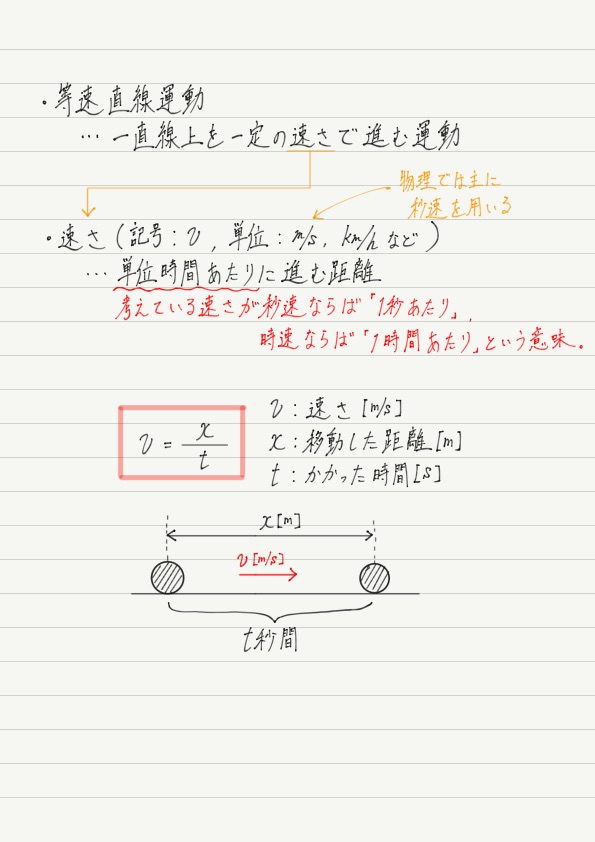 ・等速直線運動
… 一直線上を一定の速さで進む運動
物理では主に
秒速を用いる
・速さ（記号：v，単位：m/s，km/hなど）
… 単位時間あたりに進む距離
考えている速さが秒速ならば「1秒あたり」，
時速ならば「1時間あたり」という意味。
v = x/t
v：速さ[m/s]
x：移動した距離[m]
t：かかった時間[s]
x[m]
v[m/s]
t秒間